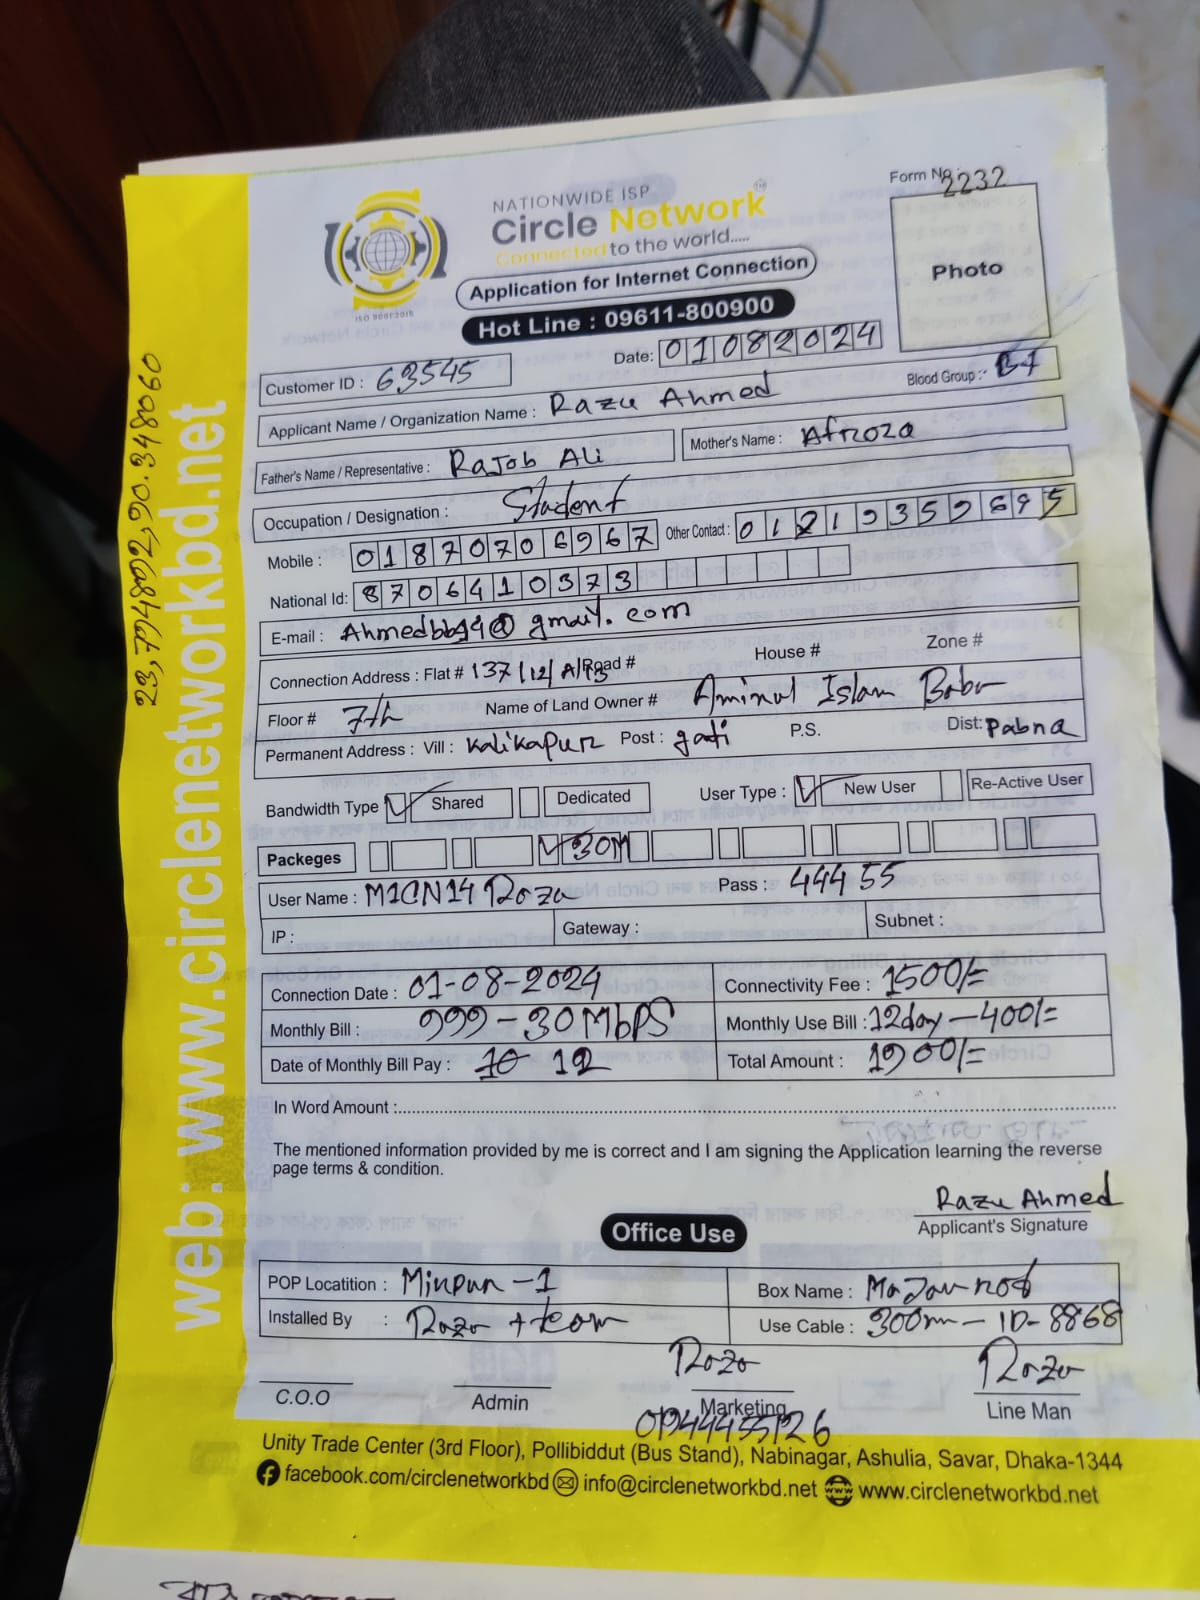 NATIONWIDE ISP
Circle Network
Connected to the world.....
ISO 9001:2015
Application for Internet Connection
Hot Line : 09611-800900
Form No 2232
Photo
Date: 01082024
Customer ID : 63545
Applicant Name / Organization Name : Razu Ahmed
Blood Group :-
Father's Name / Representative : Rajob Ali
Mother's Name : Afroza
Occupation / Designation : Student
Mobile : 01870706967
Other Contact :
National Id: 8706410373
E-mail : @gmail.com
Connection Address : Flat # 137/12/A/ Road # House # Zone #
Floor # 7th Name of Land Owner # Aminul Islam Babu
Permanent Address : Vill : Kalikapur Post : gati P.S. Dist: Pabna
Bandwidth Type Shared Dedicated User Type : New User Re-Active User
Packeges 30M
User Name : M1CN14 Razu Pass : 44455
IP : Gateway : Subnet :
Connection Date : 01-08-2024 Connectivity Fee : 1500/=
Monthly Bill : 999-30Mbps Monthly Use Bill : 12day-400/=
Date of Monthly Bill Pay : 10 12 Total Amount : 1900/=
In Word Amount :
The mentioned information provided by me is correct and I am signing the Application learning the reverse
page terms & condition.
Razu Ahmed
Applicant's Signature
Office Use
POP Locatition : Mirpur-1 Box Name :
Installed By : Razu + team Use Cable : 300m-ID-8868
Razu Razu
C.O.O Admin Marketing Line Man
Unity Trade Center (3rd Floor), Pollibiddut (Bus Stand), Nabinagar, Ashulia, Savar, Dhaka-1344
facebook.com/circlenetworkbd info@circlenetworkbd.net www.circlenetworkbd.net
web: www.circlenetworkbd.net
23,794892,90.348060